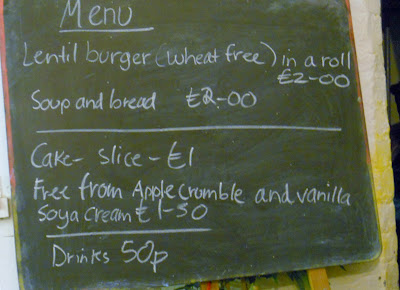 Menu
Lentil burger (wheat free) in a roll
£2-00
Soup and bread £2-00
Cake- slice - £1
Free from Apple crumble and vanilla
Soya cream £1-50
Drinks 50p